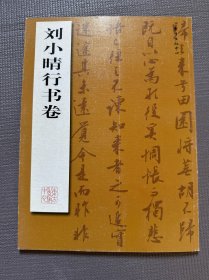 刘小晴行书卷
歸去来兮田園将蕪胡不歸
既自以心為形役奚惆悵而獨悲
悟已往之不諫知来者之可追實
迷途其未遠覺今是而昨非